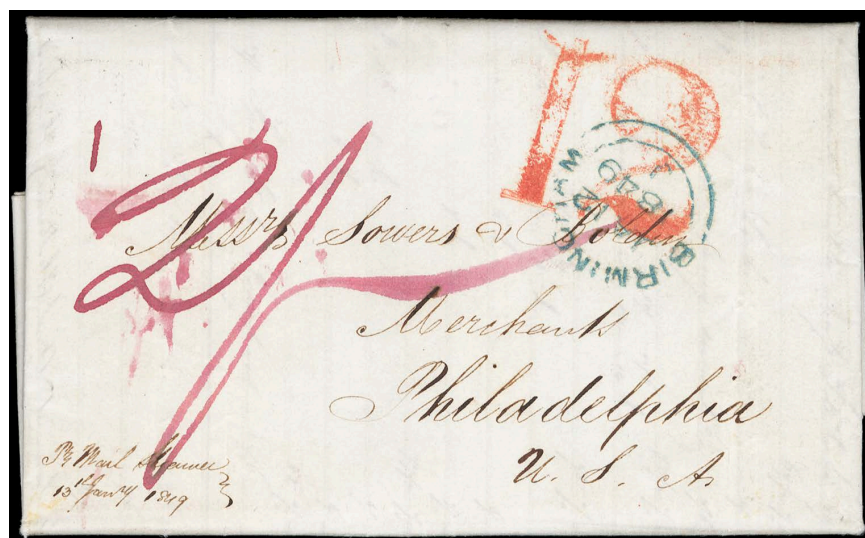 12
BIRMINGHAM
1849
1
2/
Messrs Sowers &
Merchants
Philadelphia
U. S. A.
Pr Mail Steamer
13th Jany 1849